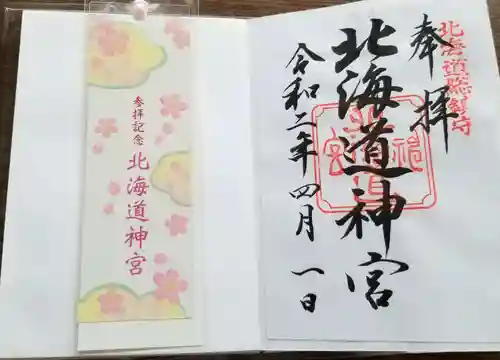 奉拝
北海道総鎮守
北海道神宮
令和二年四月一日
参拝記念
北海道神宮